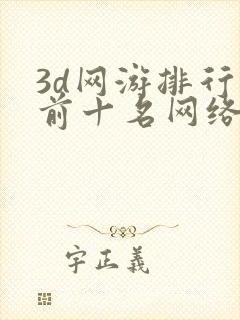 3d网游排行
前十名网络
字正義